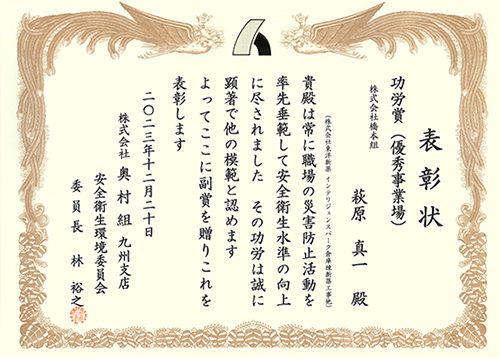 表彰状
功労賞（優秀事業場）
株式会社橋本組
萩原 真一 殿
（株式会社東洋新薬 インテリジェンスパーク倉庫棟新築工事他）
貴殿は常に職場の災害防止活動を
率先垂範して安全衛生水準の向上
に尽されました その功労は誠に
顕著で他の模範と認めます
よってここに副賞を贈りこれを
表彰します
二〇二三年十二月二十日
株式会社 奥村組 九州支店
安全衛生環境委員会
委員長 林 裕之